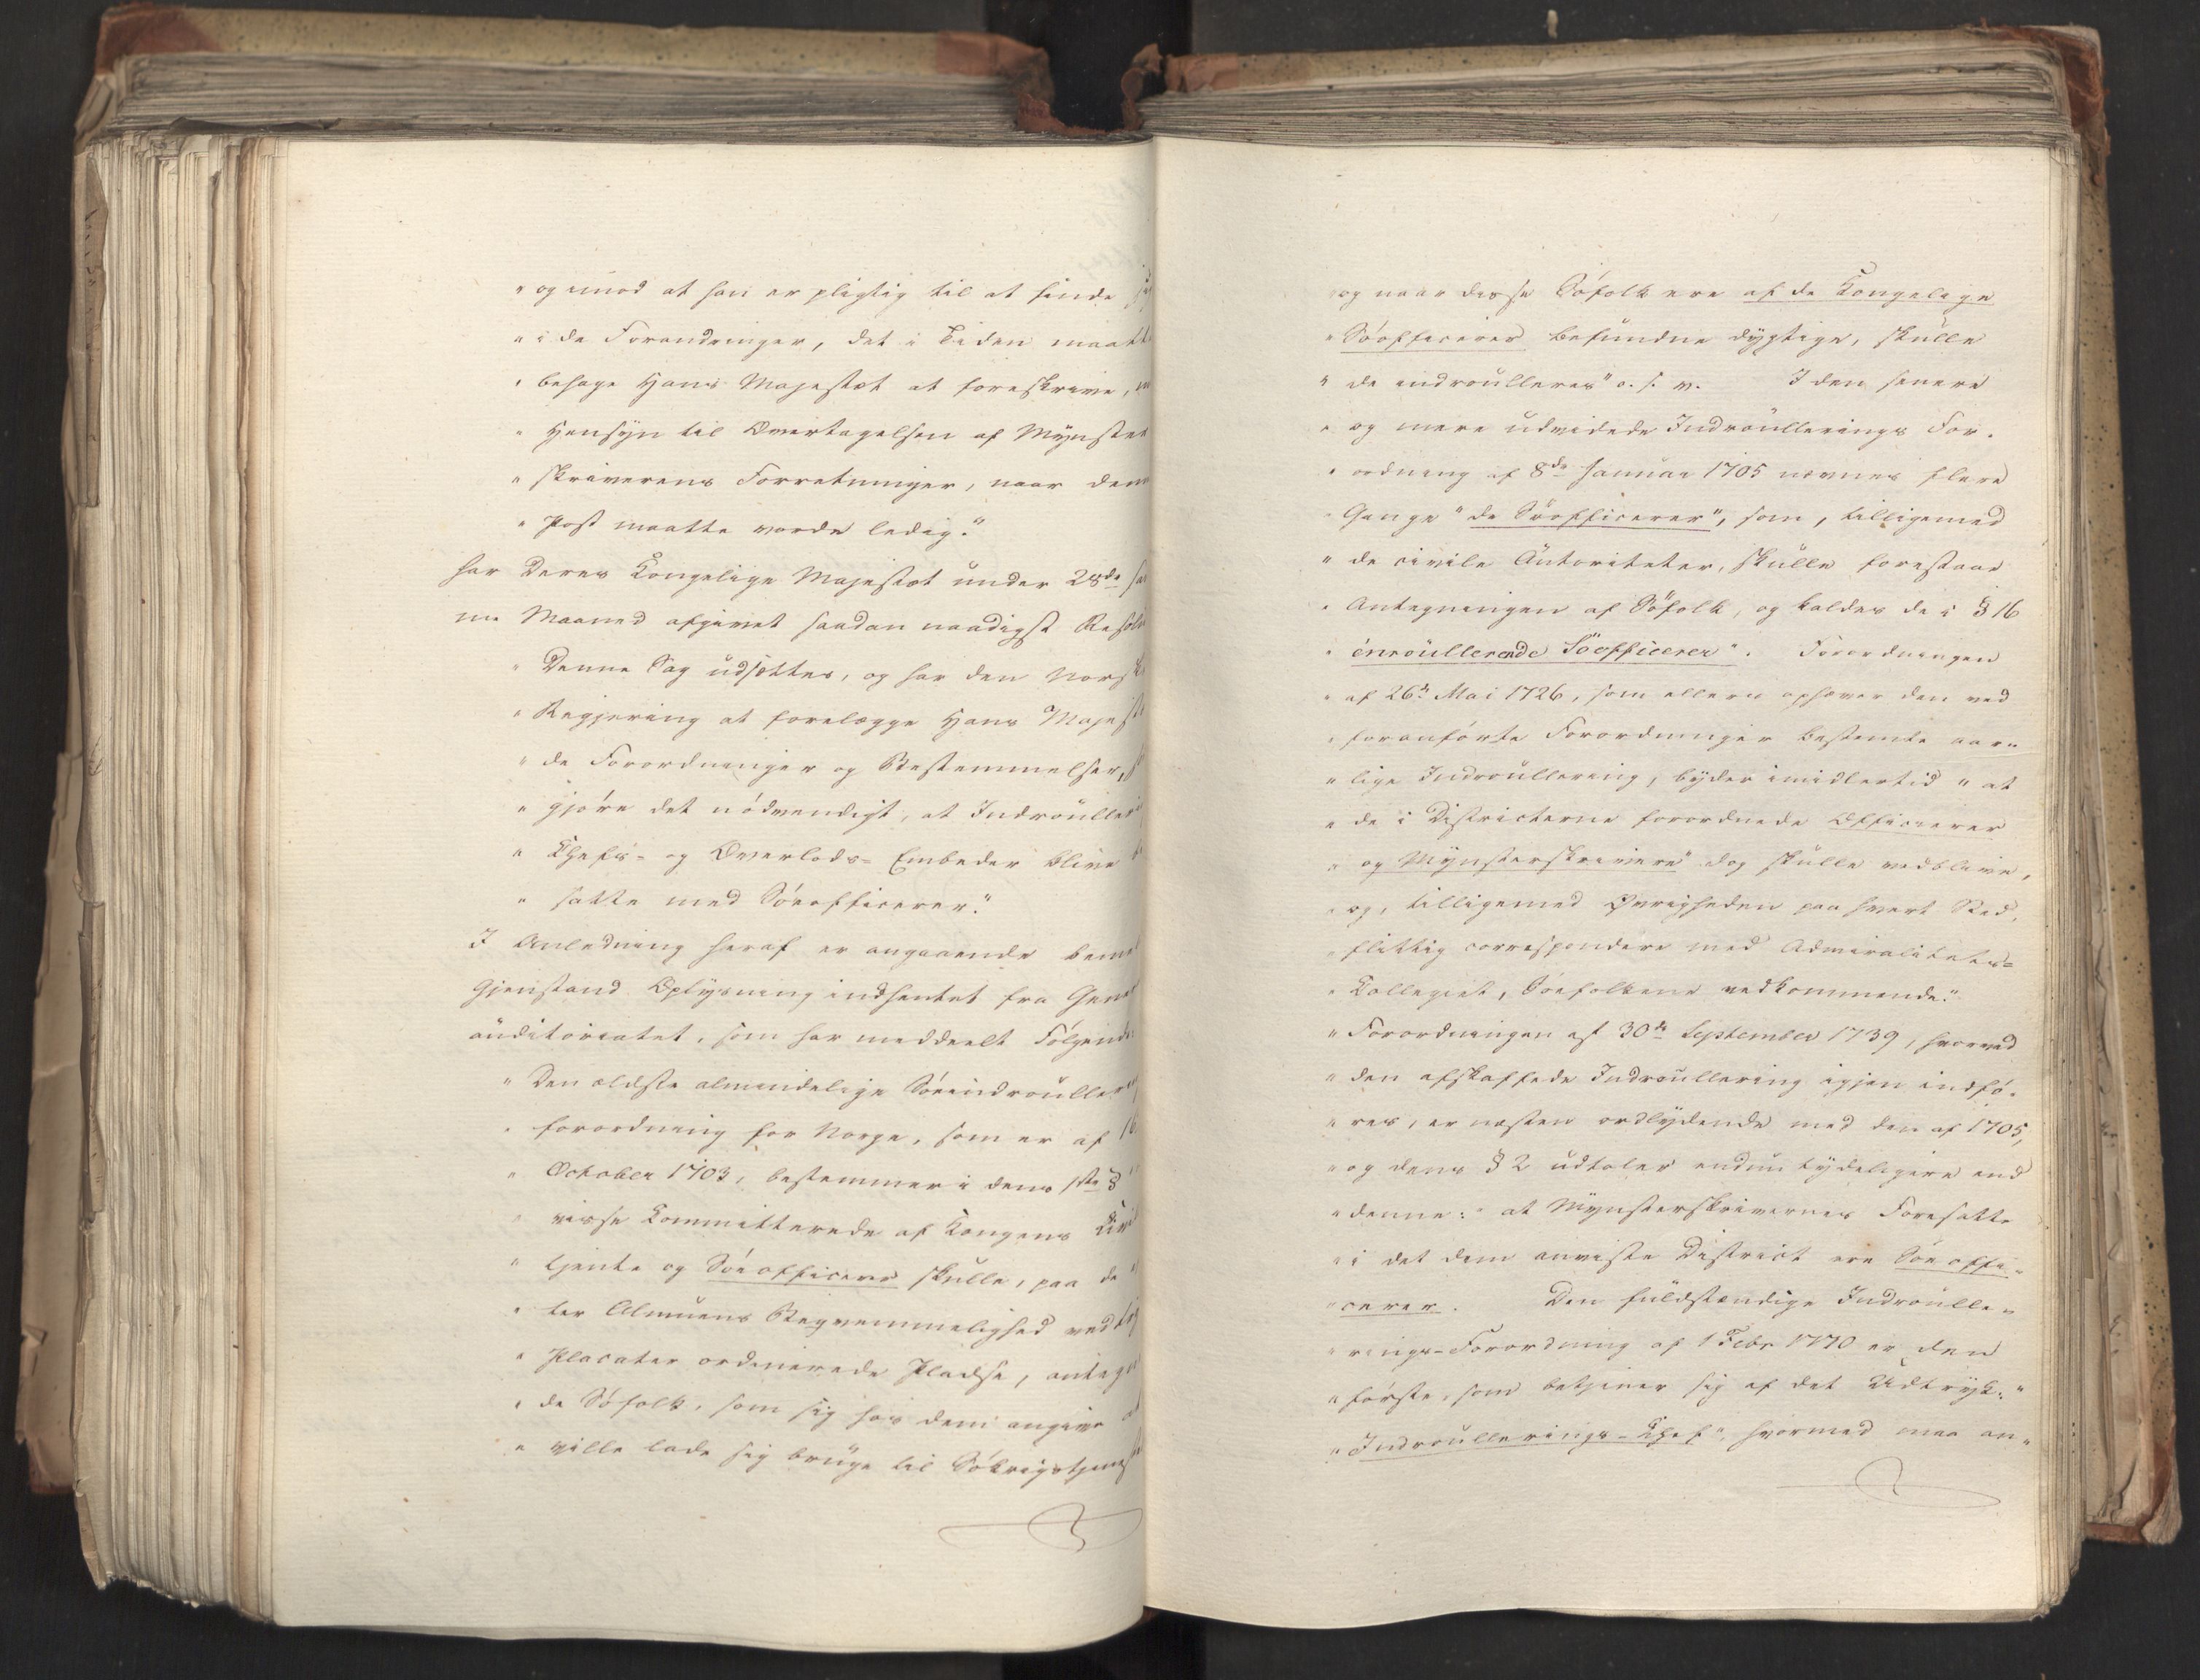 " og imod at han er pligtig til at finde
" i de Forandringer, det i Tiden maatte
" behage Hans Majestæt at foreskrive,
" Hensyn til Overtagelsen af Mynster
" skriverens Forretninger, naar denne
" Post maatte vorde ledig."
har Deres Kongelige Majestæt under 28de sam
me Maaned afgivet saadan naadigst Resolu
" Denne Sag udsættes, og har den Norske
" Regjering at forelægge Hans Majestæt
" de Forordninger og Bestemmelser,
" gjøre det nødvendigt, at Indroulleri
" Chefs- og Overlods- Embeder blive be
" satte med Søeofficerer."
I Anledning heraf er angaaende bemel
Gjenstand Oplysning indhentet fra General
auditoriatet, som har meddeelt Følgende:
" Den ældste almindelige Søeindroullering
" forordning for Norge, som er af 16
" October 1703, bestemmer i dens 1ste §
" visse Committerede af Kongens Civil
" tjente og Søeofficerer skulle, paa de ef
" ter Almuens Beqvemmelighed ved
" Placater ordinerede Pladse, antegne
" de Søfolk, som sig hos dem angive at
" ville lade sig bruge til Søkrigstjeneste
" og naar disse Søfolk ere af de Kongelige
" Søofficerer befundne dygtige, skulle
" de indroulleres" o. s. v. I den senere
" og mere udvidede Indroullerings For-
" ordning af 8de Januar 1705 nævnes flere
" Gange "de Søofficerer", som, tilligemed
" de civile Autoriteter, skulle forestaae
" Antegningen af Søfolk, og kaldes de i § 16
" enroullerende Søofficerer". Forordningen
" af 26de Mai 1726, som ellers ophæver den ved
" foranførte Forordninger bestemte aar-
" lige Indroullering, byder imidlertid " at
" de i Districterne forordnede Officierer
" og Mynsterskrivere" dog skulle vedblive,
" og, tilligemed Øvrigheden paa hvert Sted,
" flittig correspondere med Admiralitets-
" Collegiet, Søefolkene vedkommende."
" Forordningen af 30de September 1739, hvorved
" den afskaffede Indroullering igjen indfø-
" res, er næsten ordlydende med den af 1705,
" og dens § 2 udtaler endnu tydeligere end
" denne: " at Mynsterskrivernes Foresatte
" i det dem anviste District ere Søeoffi-
" cerer. Den fuldstændige Indroulle-
" rings-Forordning af 1 Febr 1770 er den
" første, som betjener sig af det Udtryk: "
" Indroullerings-Chef", hvormed maa an-